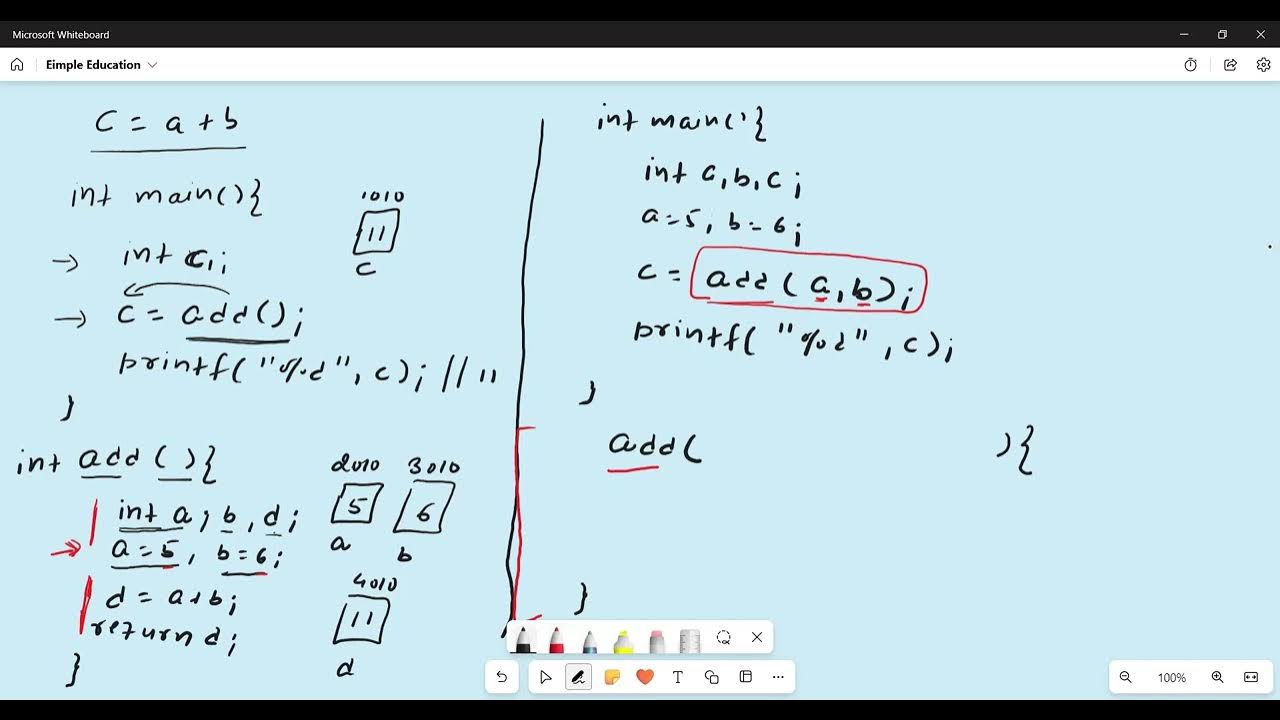 Microsoft Whiteboard
Eimple Education
C = a + b
int main(){
int c,;
c = add();
printf("%d", c); // 11
}
1010
11
c
int add (){
int a, b, d;
a = 5, b = 6;
d = a+b;
return d;
}
2010
5
a
3010
6
b
4010
11
d
int main(){
int a, b, c;
a=5, b=6;
c = add(a, b);
printf("%d", c);
}
add( ){
}
100%